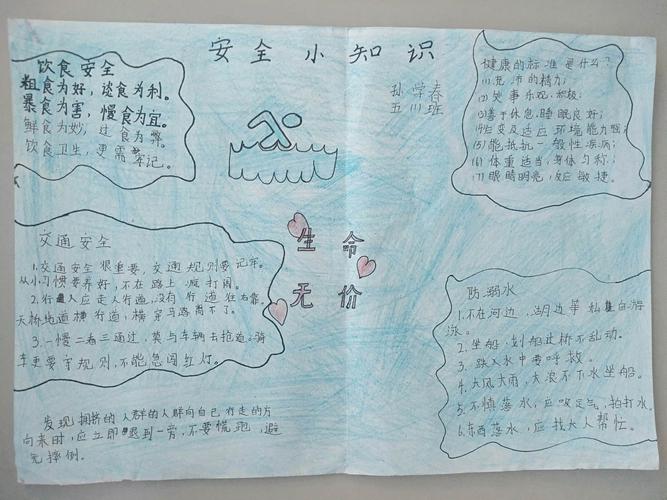 安全小知识
孙学春
五(1)班
饮食安全
粗食为好，淡食为利。
暴食为害，慢食为宜。
鲜食为妙，过食为弊。
饮食卫生，更需牢记。
健康的标准是什么？
(1)充沛的精力；
(2)处事乐观，积极；
(3)善于休息，睡眠良好；
(4)应变及适应环境能力强；
(5)能抵抗一般性疾病；
(6)体重适当，身体匀称；
(7)眼睛明亮，反应敏捷。
生命
无价
交通安全
1.交通安全很重要，交通规则要记牢。
从小习惯要养好，不在路上疯打闹。
2.行人应走人行道，没有行道往右靠。
天桥地道横行道，横穿马路离不了。
3.一慢二看三通过，莫与车辆去抢道。骑
车更要守规则，不能急闯红灯。
发现拥挤的人群的人群向自己行走的方
向来时，应立即退到一旁，不要慌跑，避
免摔倒。
防溺水
1.不在河边，湖边等私自游
泳。
2.坐船，划船过桥不乱动。
3.跌入水中要呼救。
4.大风大雨，大浪不下水坐船。
5.不慎落水，应吸足气，拍打水。
6.东西落水，应找大人帮忙。